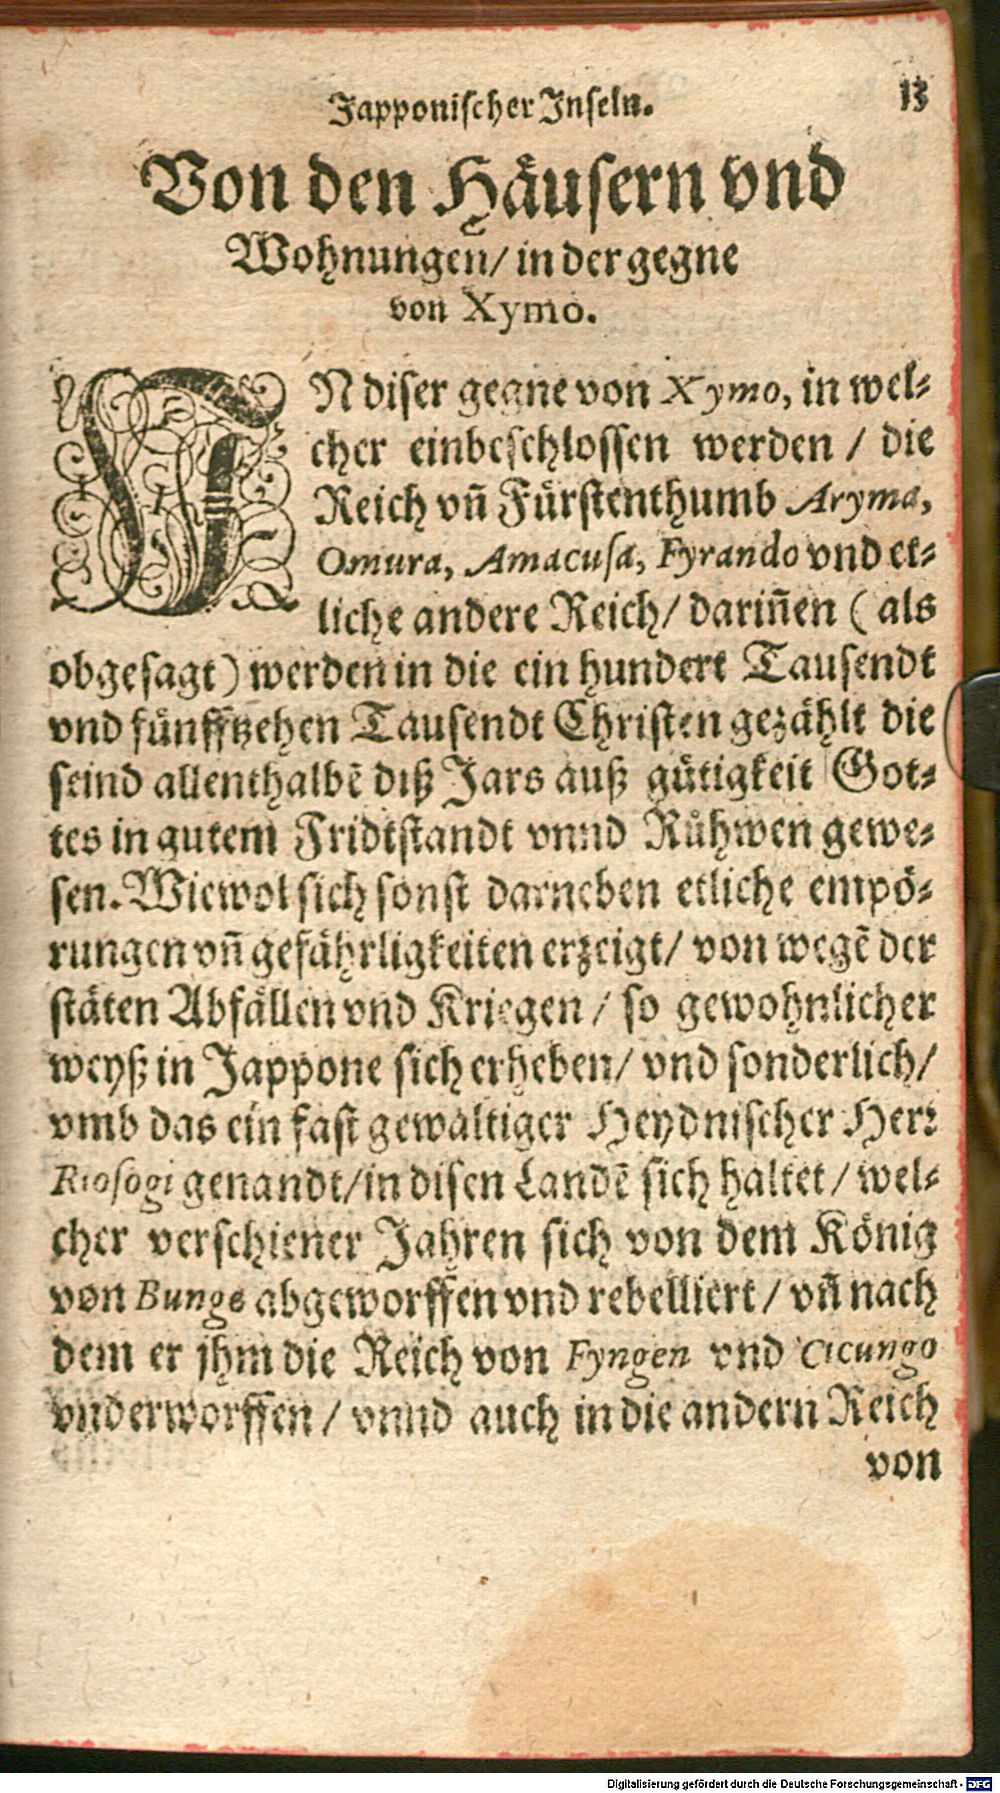 Japponischer Inseln. 13
Von den Häusern vnd
Wohnungen/ in der gegne
von Xymo.
IN diser gegne von Xymo, in wel⸗
cher einbeschlossen werden / die
Reich vñ Fürstenthumb Aryma,
Omura, Amacusa, Fyrando vnd et⸗
liche andere Reich/ dariñen (als
obgesagt) werden in die ein hundert Tausendt
vnd fünfftzehen Tausendt Christen gezählt die
seind allenthalbē diß Jars auß gütigkeit Got⸗
tes in gutem Fridtstandt vnnd Rühwen gewe⸗
sen. Wiewol sich sonst darneben etliche empö⸗
rungen vñ gefährligkeiten erzeigt/ von wegē der
stäten Abfällen vnd Kriegen / so gewohnlicher
weyß in Jappone sich erheben/ vnd sonderlich/
vmb das ein fast gewaltiger Heydnischer Herr
Riosogi genandt/ in disen Landē sich haltet / wel⸗
cher verschiener Jahren sich von dem König
von Bungo abgeworffen vnd rebelliert / vñ nach
dem er jhm die Reich von Fyngen vnd Cicungo
vnderworffen / vnnd auch in die andern Reich
von
Digitalisierung gefördert durch die Deutsche Forschungsgemeinschaft - DFG